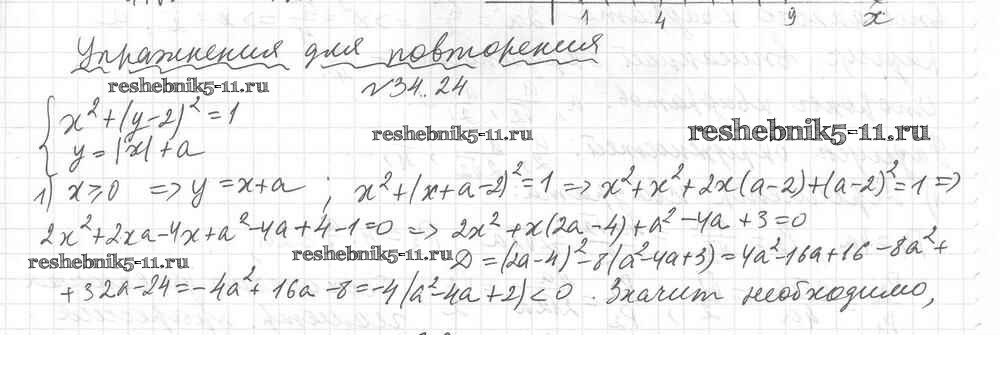 1 4 9 x
Упражнения для повторения
reshebnik5-11.ru
№34.24
x²+(y-2)²=1
reshebnik5-11.ru reshebnik5-11.ru
y=|x|+a
1) x≥0 => y=x+a ; x²+(x+a-2)²=1 => x²+x²+2x(a-2)+(a-2)²=1 =>
2x²+2xa-4x+a²-4a+4-1=0 => 2x²+x(2a-4)+a²-4a+3=0
reshebnik5-11.ru reshebnik5-11.ru D=(2a-4)²-8(a²-4a+3)=4a²-16a+16-8a²+
+32a-24=-4a²+16a-8=-4(a²-4a+2)<0. Значит необходимо,